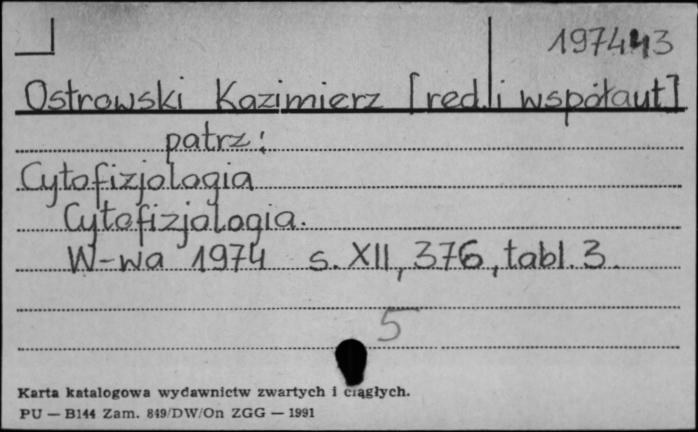 197443
Ostrowski Kazimierz [red. i współaut]
patrz:
Cytofizjologia
Cytofizjologia.
W-wa 1974 s. XII, 376, tabl. 3.
5
Karta katalogowa wydawnictw zwartych i ciągłych.
PU — B144 Zam. 849/DW/On ZGG — 1991